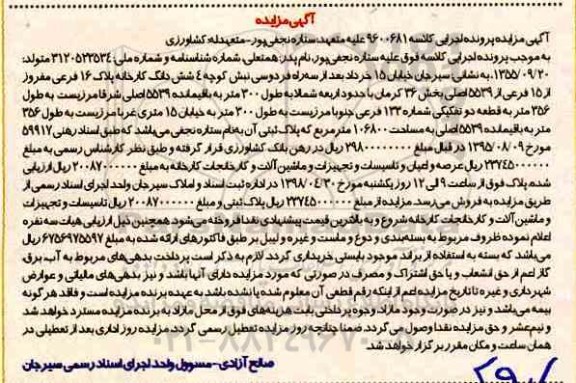 آگهی مزایده
آگهی مزایده پرونده اجرایی کلاسه ۹۶۰۰۶۸۱ علیه متعهد: ستاره نجفی پور- متعهدله: کشاورزی
به موجب پرونده اجرایی کلاسه فوق علیه ستاره نجفی پور، نام پدر: همتعلی، شماره شناسنامه و شماره ملی: ۳۱۲۰۵۲۳۵۳۴ متولد:
۱۳۵۵/۰۹/۲۰، به نشانی: سیرجان خیابان ۱۵ خرداد بعد از سه راه فردوسی نبش کوچه ۴ شش دانگ کارخانه پلاک ۱۶ فرعی مفروز
از ۱۵ فرعی از ۵۵۳۹ اصلی بخش ۳۶ کرمان با حدود اربعه شمالا به طول ۳۰۰ متر به باقیمانده ۵۵۳۹ اصلی شرقا مرزیست به طول
۳۵۶ متر به قطعه دو تفکیکی شماره ۱۳۲ فرعی جنوبا مرزیست به طول ۳۰۰ متر به خیابان ۱۵ متری غربا مرزیست به طول ۳۵۶
متر به باقیمانده ۵۵۳۹ اصلی به مساحت ۱۰۶۸۰۰ مترمربع که پلاک ثبتی آن به نام ستاره نجفی می‌باشد که طبق اسناد رهنی ۵۹۹۱۷
مورخ ۱۳۹۵/۰۸/۰۹ در قبال مبلغ ۳۹۸۰۰۰۰۰۰۰۰ ریال در رهن بانک کشاورزی قرار گرفته و طبق نظر کارشناس رسمی به مبلغ
۲۳۷۴۵۰۰۰۰۰۰ ریال عرصه و اعیان و تاسیسات و تجهیزات و ماشین آلات و کارخانجات کارخانه به مبلغ ۲۰۰۸۷۰۰۰۰۰۰ ریال ارزیابی
شده پلاک فوق از ساعت ۹ الی ۱۲ روز یکشنبه مورخ ۱۳۹۸/۰۴/۳۰ در اداره ثبت اسناد و املاک سیرجان واحد اجرای اسناد رسمی از
طریق مزایده به فروش می‌رسد. مزایده از مبلغ ۲۳۷۴۵۰۰۰۰۰۰ ریال پلاک ثبتی و مبلغ ۲۰۰۸۷۰۰۰۰۰۰ ریال تاسیسات و تجهیزات
و ماشین آلات و کارخانجات کارخانه شروع و به بالاترین قیمت پیشنهادی نقدا فروخته می‌شود. همچنین ذیل ارزیابی هیات سه نفره
اعلام نموده ظروف مربوط به بسته بندی و دوغ و ماست و غیره و لیبل بر طبق فاکتورهای ارائه شده به مبلغ ۶۷۵۶۹۷۵۵۹۷ ریال
می‌باشد که بسته به استفاده از برند موجود بایستی خریداری گردد. لازم به ذکر است پرداخت بدهی‌های مربوط به آب، برق،
گاز اعم از حق انشعاب و یا حق اشتراک و مصرف در صورتی که مورد مزایده دارای آنها باشد و نیز بدهی‌های مالیاتی و عوارض
شهرداری و غیره تا تاریخ مزایده اعم از اینکه رقم قطعی آن معلوم شده یا نشده باشد به عهده برنده مزایده است و فاقد هر گونه
بیمه می‌باشد و نیز در صورت وجود مازاد، وجوه پرداختی بابت هزینه‌های فوق از محل مازاد به برنده مزایده مسترد خواهد شد
و نیم عشر و حق مزایده نقدا وصول می گردد. ضمنا چنانچه روز مزایده تعطیل رسمی گردد، مزایده روز اداری بعد از تعطیلی در
همان ساعت و مکان مقرر برگزار خواهد شد.
صالح آزادی- مسوول واحد اجرای اسناد رسمی سیرجان